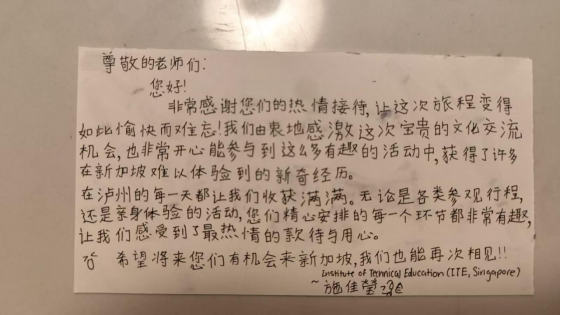 尊敬的老师们:
您好!
非常感谢您们的热情接待,让这次旅程变得
如此愉快而难忘!我们由衷地感激这次宝贵的文化交流
机会,也非常开心能参与到这么多有趣的活动中,获得了许多
在新加坡难以体验到的新奇经历。
在泸州的每一天都让我们收获满满。无论是各类参观行程,
还是亲身体验的活动,您们精心安排的每一个环节都非常有趣,
让我们感受到了最热情的款待与用心。
希望将来您们有机会来新加坡,我们也能再次相见!!
Institute of Technical Education (ITE, Singapore)
~施佳莹